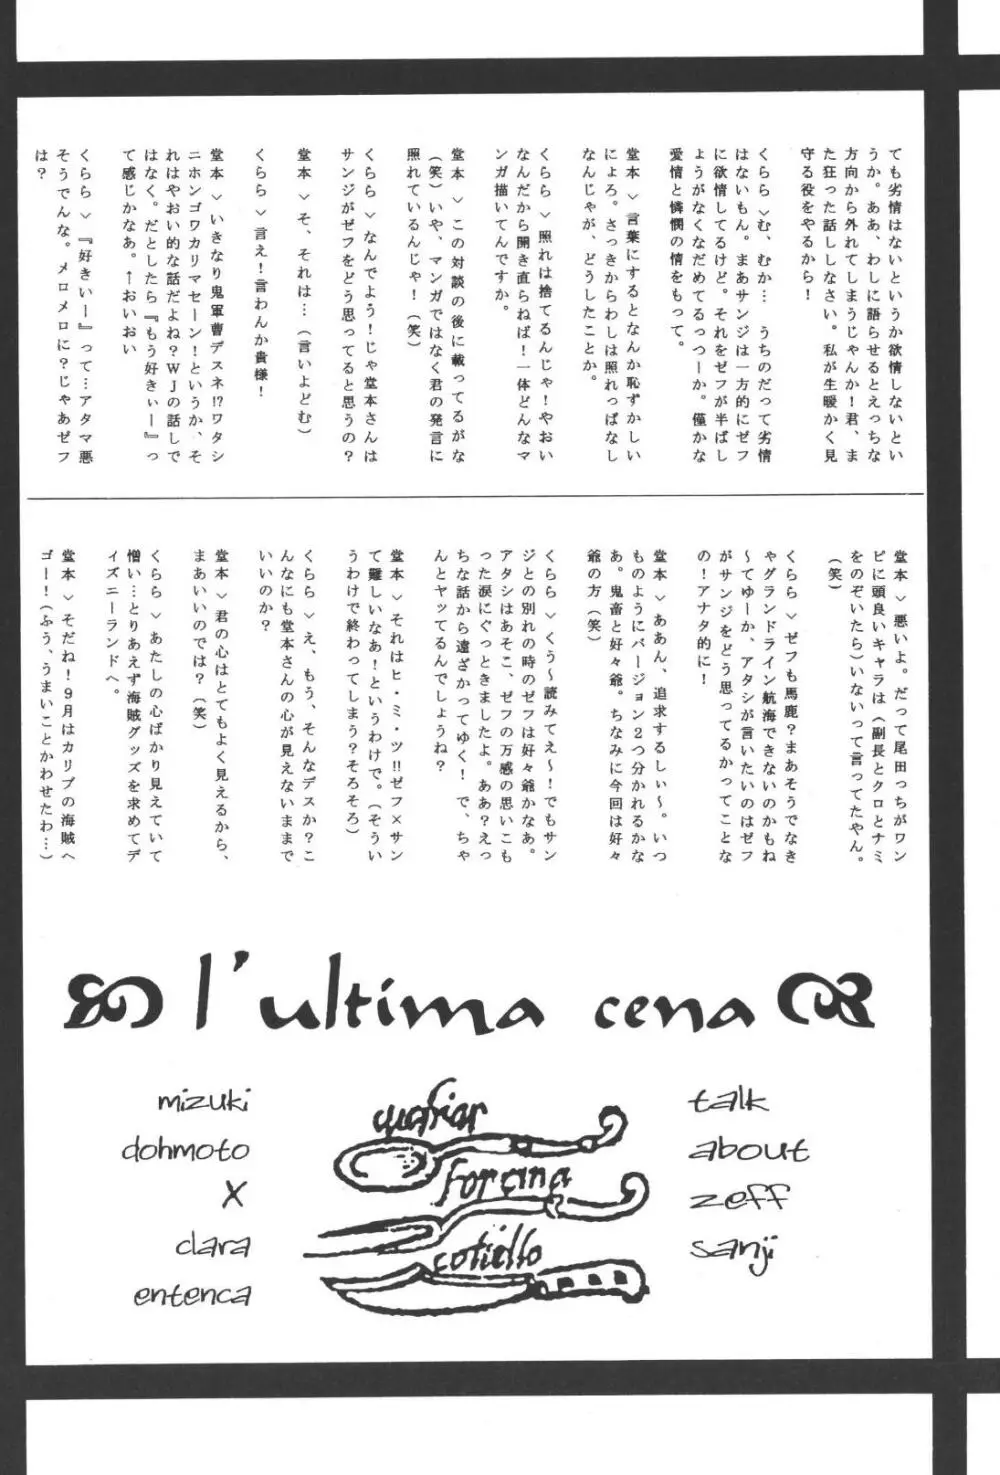 ても劣情はないというか欲情しないとい
うか。ああ、わしに語らせるとえっちな
方向から外れてしまうじゃんか！君、ま
た狂った話ししなさい。私が生暖かく見
守る役をやるから！
くらら＞む、むか… うちのだって劣情
はないもん。まあサンジは一方的にゼフ
に欲情してるけど。それをゼフが半ばし
ょうがなくなだめてるっつーか。僅かな
愛情と憐憫の情をもって。
堂本＞言葉にするとなんか恥ずかしい
にょろ。さっきからわしは照れっぱなし
なんじゃが、どうしたことか。
くらら＞照れは捨てるんじゃ！やおい
なんだから開き直らねば！一体どんなマ
ンガ描いてんですか。
堂本＞この対談の後に載ってるがな
（笑）いや、マンガではなく君の発言に
照れているんじゃ！（笑）
くらら＞なんでよう！じゃ堂本さんは
サンジがゼフをどう思ってると思うの？
堂本＞そ、それは…（言いよどむ）
くらら＞言え！言わんか貴様！
堂本＞いきなり鬼軍曹デスネ!?ワタシ
ニホンゴワカリマセーン！というか、そ
れはやおい的な話だよね？WJの話しで
はなく。だとしたら『もう好きぃー』っ
て感じかなあ。←おいおい
くらら＞『好きいー』って…アタマ悪
そうでんな。メロメロに？じゃあゼフ
は？
堂本＞悪いよ。だって尾田っちがワン
ピに頭良いキャラは（副長とクロとナミ
をのぞいたら）いないって言ってたやん。
（笑）
くらら＞ゼフも馬鹿？まあそうでなき
ゃグランドライン航海できないのかもね
～てゆーか、アタシが言いたいのはゼフ
がサンジをどう思ってるかってことな
の！アナタ的に！
堂本＞ああん、追求するしぃ～。いつ
ものようにバージョン2つ分かれるかな
あ。鬼畜と好々爺。ちなみに今回は好々
爺の方（笑）
くらら＞くう～読みてえ～！でもサン
ジとの別れの時のゼフは好々爺かなあ。
アタシはあそこ、ゼフの万感の思いこも
った涙にぐっときましたよ。ああ？えっ
ちな話から遠ざかってゆく！で、ちゃ
んとヤッてるんでしょうね？
堂本＞それはヒ・ミ・ツ!!ゼフ×サン
て難しいなあ！というわけで。（そうい
うわけで終わってしまう？そろそろ）
くらら＞え、もう、そんなデスか？こ
んなにも堂本さんの心が見えないままで
いいのか？
堂本＞君の心はとてもよく見えるから、
まあいいのでは？（笑）
くらら＞あたしの心ばかり見えていて
憎い…とりあえず海賊グッズを求めてデ
ィズニーランドへ。
堂本＞そだね！9月はカリブの海賊へ
ゴー！（ふう、うまいことかわせたわ…）
l'ultima cena
mizuki
dohmoto
X
clara
entenca
forcina
coltello
talk
about
zeff
sanji